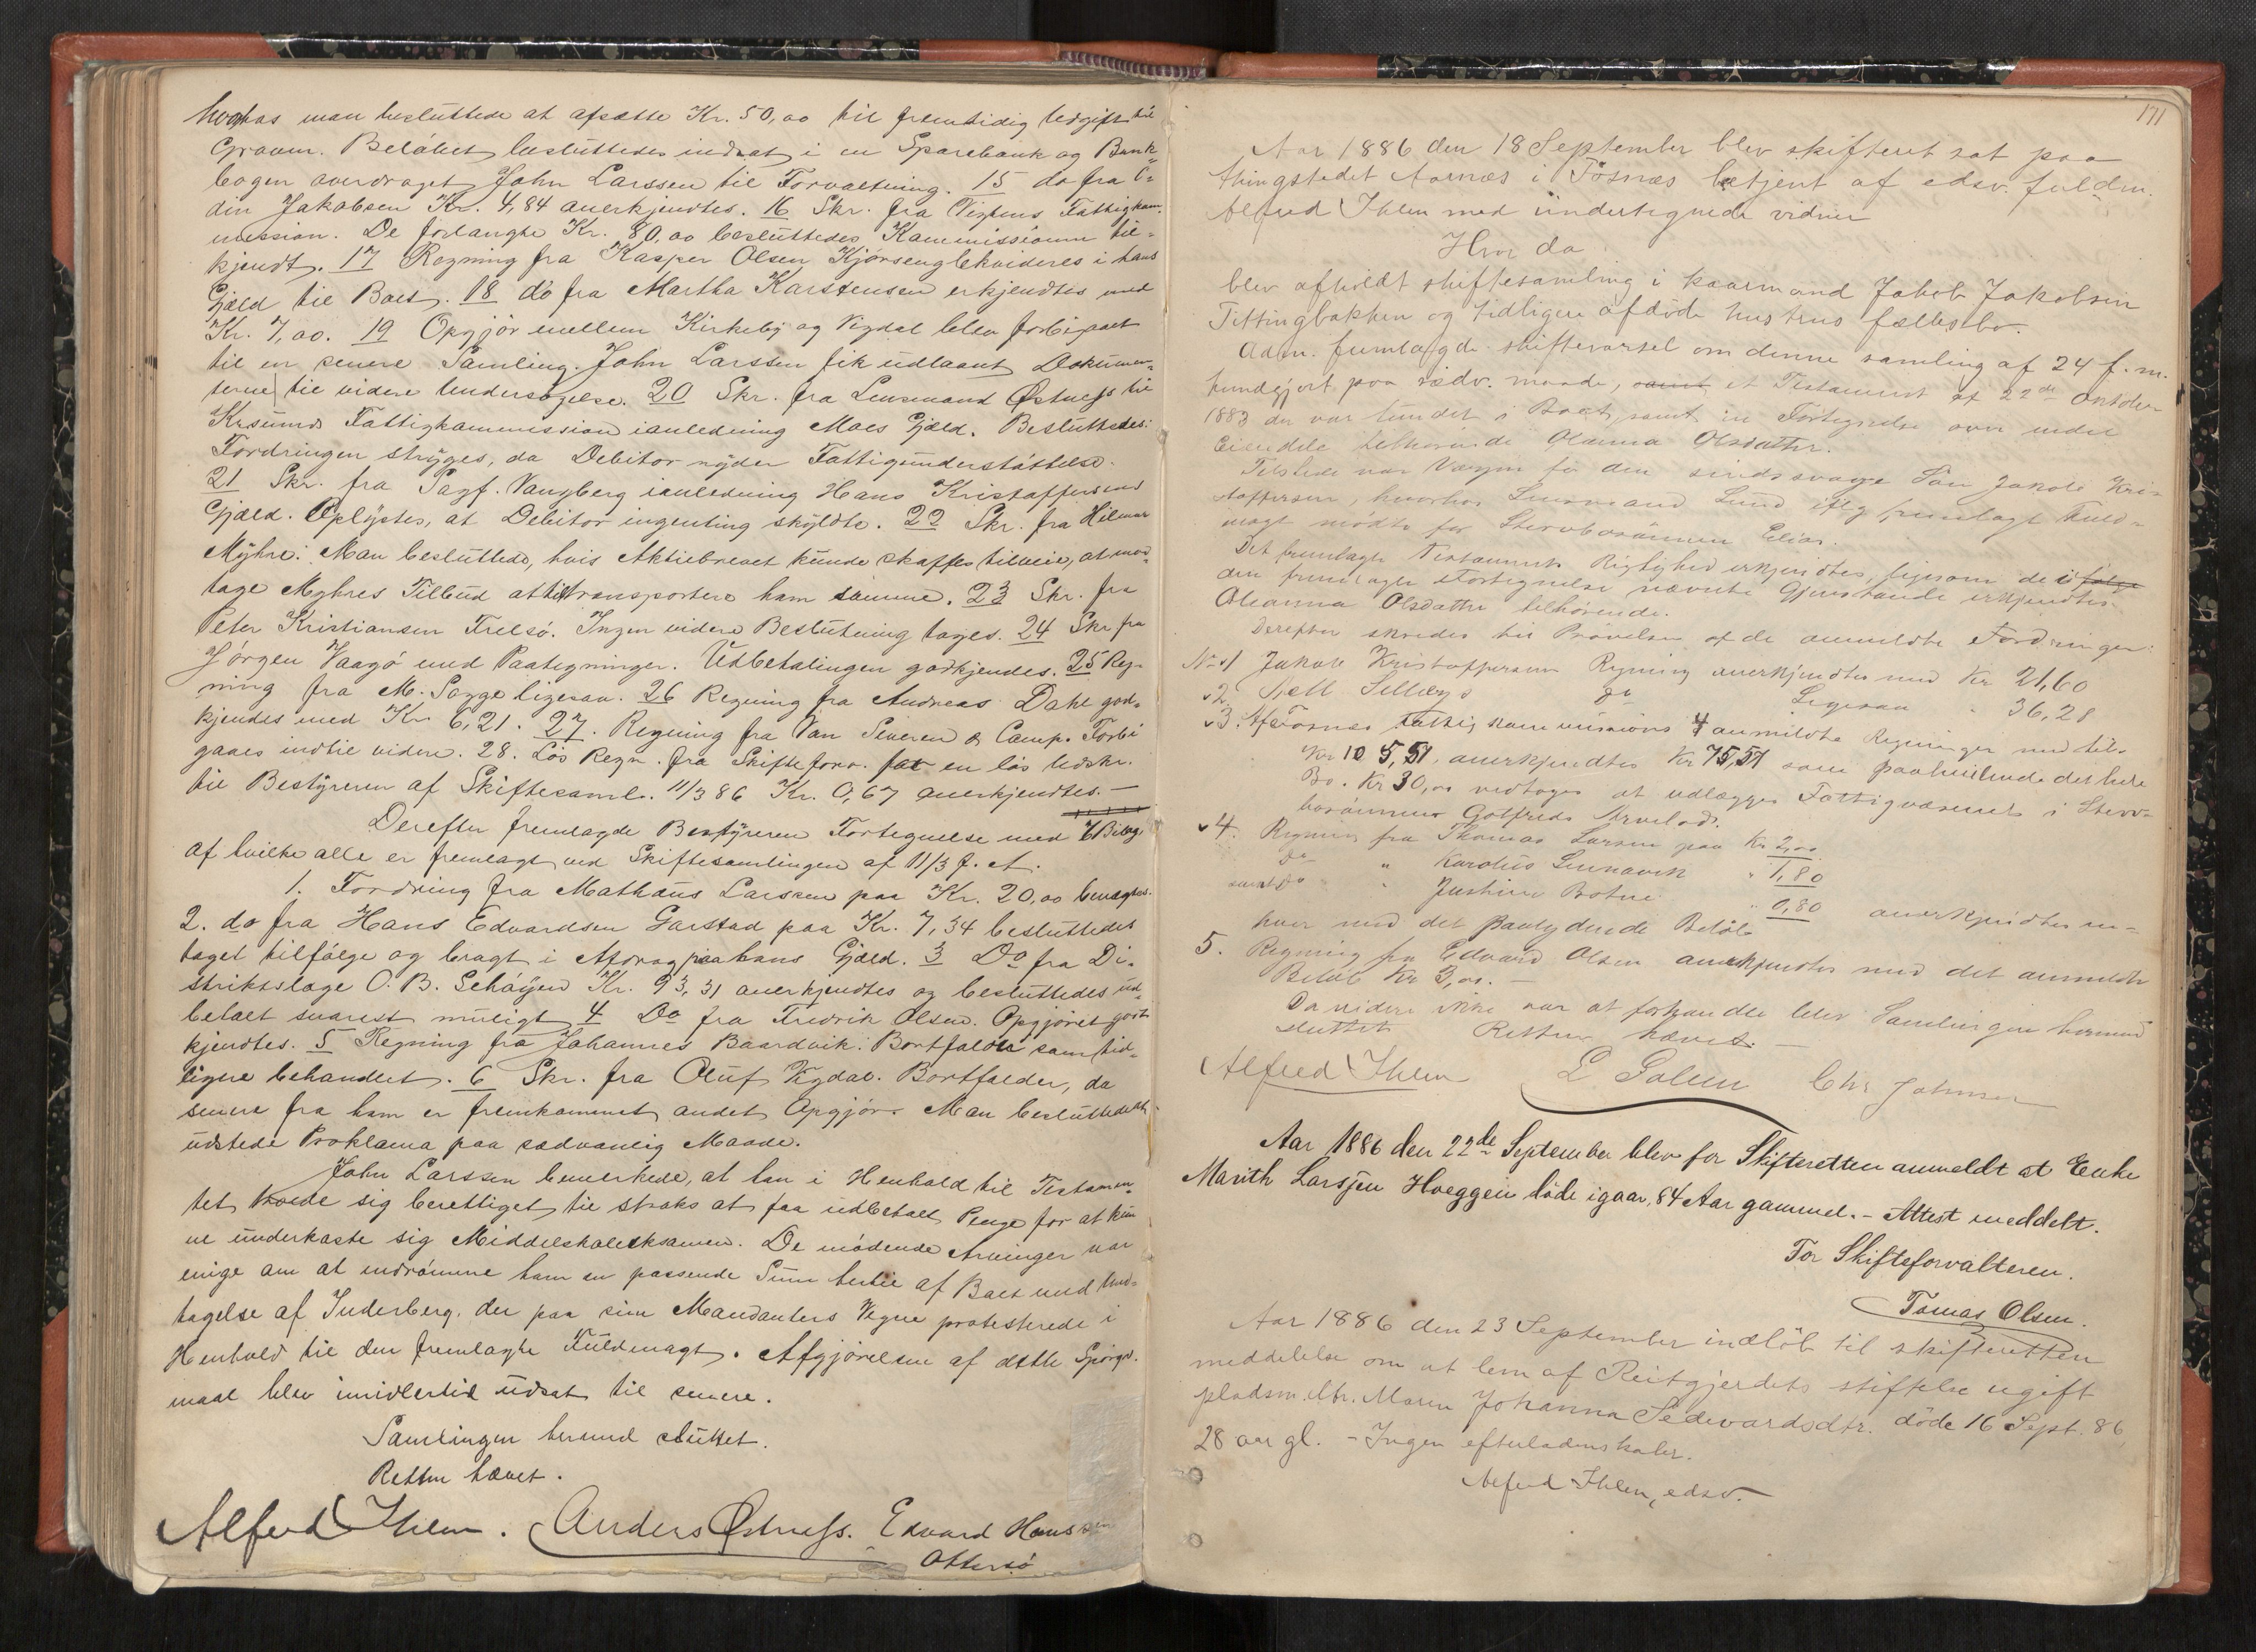 hvorhos man besluttede at afsætte Kr. 50,00 til fremtidig Udgift til
Graven. Beløbet besluttedes indsat i en Sparebank og Bank-
bogen overdraget John Larssen til Forvaltning. 15 do fra O-
din Jakobsen Kr. 4,84 anerkjendtes. 16 Skr. fra Vigtens Fattigkom-
mission. De forlangte Kr. 80,00 besluttedes Kommissionen til-
kjendt. 17 Regning fra Kasper Olsen Kjørseng likvideres i hans
Gjæld til Boet. 18 do fra Martha Karstensen erkjendtes med
Kr. 7,00. 19 Opgjør mellem Kirkeby og Vigdal blev forbigaaet
til en senere Samling. John Larssen fik udlaant Dokumen-
terne til videre Undersøgelse. 20 Skr. fra Lensmand Østnefs til
Fattigkommission ianledning Moes Gjæld. Besluttedes:
Fordringen stryges, da Debitor nyder Fattigunderstøttelse.
21 Skr. fra Sagf. Vangberg ianledning Hans Kristoffersens
Gjæld. Oplystes, at Debitor ingenting skyldte. 22 Skr. fra Hilmar
Myhre: Man besluttede, hvis Aktiebrevet kunde skaffes tilveie, at mod-
tage Myhres Tilbud at tiltransportere ham samme. 23 Skr. fra
Peter Kristiansen Frelsø. Ingen videre Beslutning toges. 24 Skr fra
Jørgen Vaagø med Paategninger. Udbetalingen godkjendes. 25 Reg-
ning fra M. Sagge ligesaa. 26 Regning fra Andreas Dahl god-
kjendes med Kr. 6,21. 27. Regning fra Van Severen & Comp. Forbi
gaaes indtil videre. 28. Løs Regn. fra Skifteforv. for en løs Udskr.
til Bestyreren af Skiftesaml. 11/3 86 Kr. 0,67 anerkjendtes. —
Derefter fremlagde Bestyreren Fortegnelse med 6 Bilag
af hvilke alle er fremlagt ved Skiftesamlingen af 11/3 f. A.
1. Fordring fra Mathæus Larssen paa Kr. 20,00 benægtes.
2. do fra Hans Edvardsen Garstad paa Kr. 7,34 besluttedes
taget tilfølge og bragt i Afdrag paa hans Gjæld. 3 Do fra Di-
striktslæge O. B. Schøyen Kr. 93,31 anerkjendtes og besluttedes ud-
betalt snarest muligt. 4 Do fra Fredrik Olsen. Opgjøret god-
kjendtes. 5 Regning fra Johannes Baardvik. Bortfalder som tid-
ligere behandlet. 6 Skr. fra Oluf Vigdal. Bortfalder, da
senere fra ham er fremkommet andet Opgjør. Man besluttede at
udstede Proklama paa sædvanlig Maade.
John Larssen bemerkede, at han i Henhold til Testamen-
tet troede sig berettiget til straks at faa udbetalt Penge for at kun-
ne underkaste sig Middelskoleeksamen. De mødende Arvinger var
enige om at indrømme ham en passende Sum hertil af Boet med Und-
tagelse af Inderberg, der paa sine Mandanters Vegne protesterede i
Henhold til den fremlagte Fuldmagt. Afgjørelsen af dette Spørgs-
maal blev imidlertid udsat til senere.
Samlingen hermed sluttet.
Retten hævet.
Alfred Ihlen. Anders Østnefs. Edvard Hanssen
Ottersø
171
Aar 1886 den 18 September blev skifteret sat paa
thingstedet Aarnæs i Fosnæs betjent af edsv. fuldm.
Alfred Ihlen med undertegnede vidner
Hvor da
blev afholdt skiftesamling i kaarmand Jakob Jakobsen
Tettingbakken og tidligere afdøde hustrus fællesbo.
Adm. fremlagde skiftevarsel om denne samling af 24 f. m.
kundgjort paa sædv. maade, samt et Testament af 22de Oktober
1883 der var fundet i Boet, samt en Fortegnelse over endel
Eiendele tilhørende Oleanna Olsdatter.
Tilstede var Værgen for den sindssvage Søn Jakob Kri-
stoffersen, hvorhos Lensmand Lund iflg fremlagt Fuld-
magt mødte for Stervbosønnen Elias.
Det fremlagte Testaments Rigtighed erkjendtes, ligesom de i følge
den fremlagte Fortegnelse nævnte Gjenstande erkjendtes
Oleanna Olsdatter tilhørende.
Derefter skredes til Prøvelsen af de anmeldte Fordringer:
No 1 Jakob Kristoffersens Regning anerkjendtes med Kr 21,60
2. Sellægs do Ligesaa " 36,28
3. Af Fosnes Fattigkommissions 4 anmeldte Regninger med tils.
Kr 105,51, anerkjendtes Kr 75,51 som paahvilende det hele
Bo. Kr 30,00 vedtoges at udlægges Fattigvæsenet i Sterv-
bosønnen Gotfreds Arvelod.
4. Regning fra Thomas Larsen paa Kr 2,00
Do " Karolius " 1,80
samt do " Justine Botne " 0,80 anerkjendtes en-
hver med det paalydende Beløb
5. Regning fra Edvard Olsen anerkjendtes med det anmeldte
Beløb Kr 3,00. —
Da videre ikke var at forhandle blev Samlingen hermed
sluttet Retten hævet. —
Alfred Ihlen Chr. Johnsen
Aar 1886 den 22de September blev for Skifteretten anmeldt at Enke
Marith Larsjen Hoeggen døde igaar, 84 Aar gammel. – Attest meddelt.
For Skifteforvalteren.
Tomas Olsen.
Aar 1886 den 23 September indløb til skifteretten
meddelelse om at lem af Reitgjerdets stiftelse ugift
pladsm. dtr. Maren Johanna Sedevardsdtr. døde 16 Sept. 86,
28 aar gl. – Ingen efterladenskaber.
Alfred Ihlen, edsv.